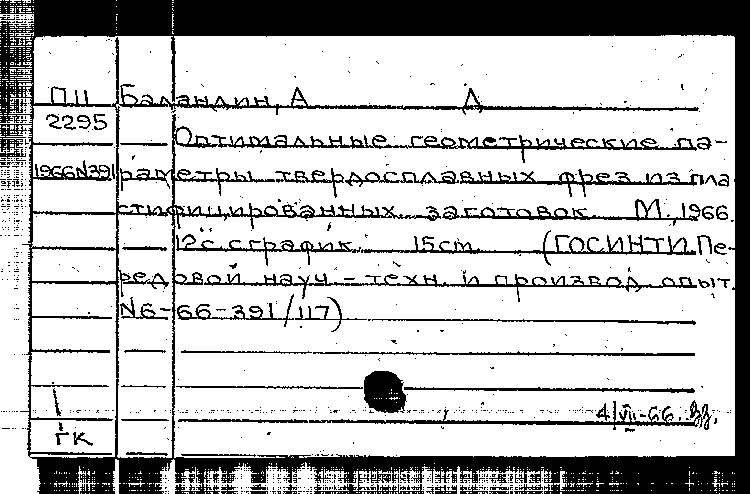 П11 Баландин, А А
2295 Оптимальные геометрические па-
1966N391 раметры твердосплавных фрез из пла
стифицированных заготовок. М., 1966.
12 с. с график. 15 cm. (ГОСИНТИ. Пе-
редовой науч-техн. и производ. опыт.
N6-66-391/117)
4/VII-66.
ГК